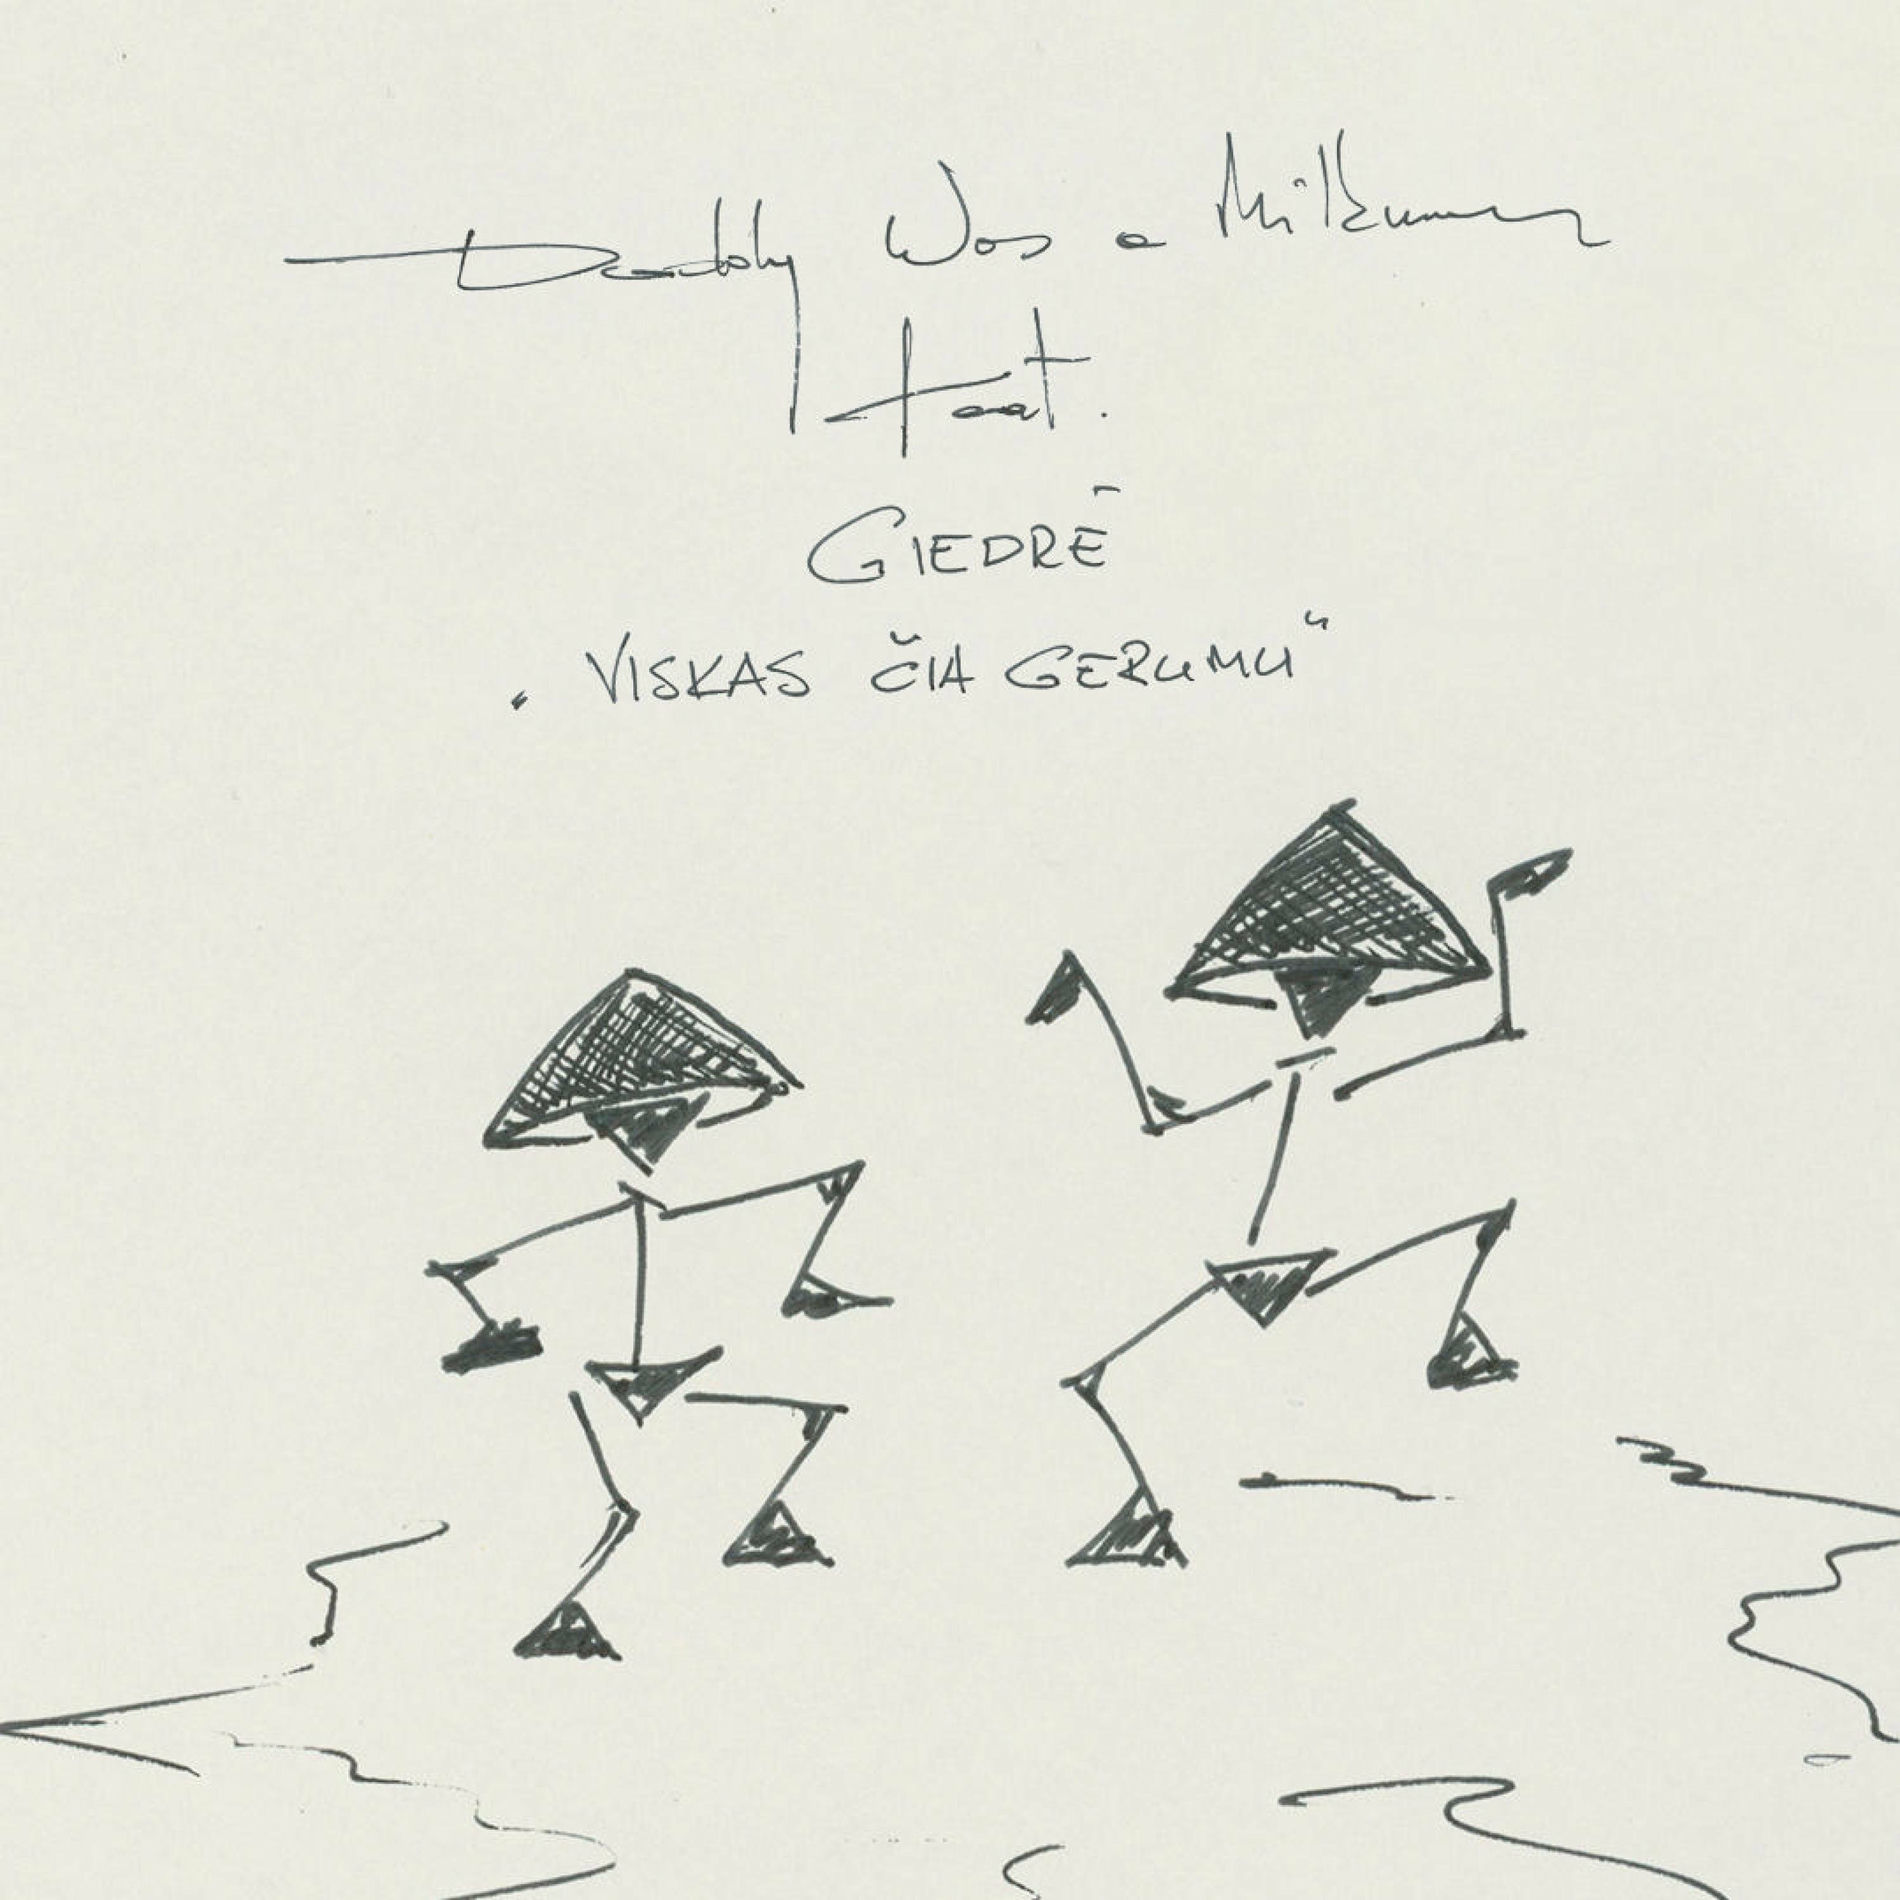 Daddy Was a Milkman
feat.
GIEDRĖ
„VISKAS ČIA GERUMU“